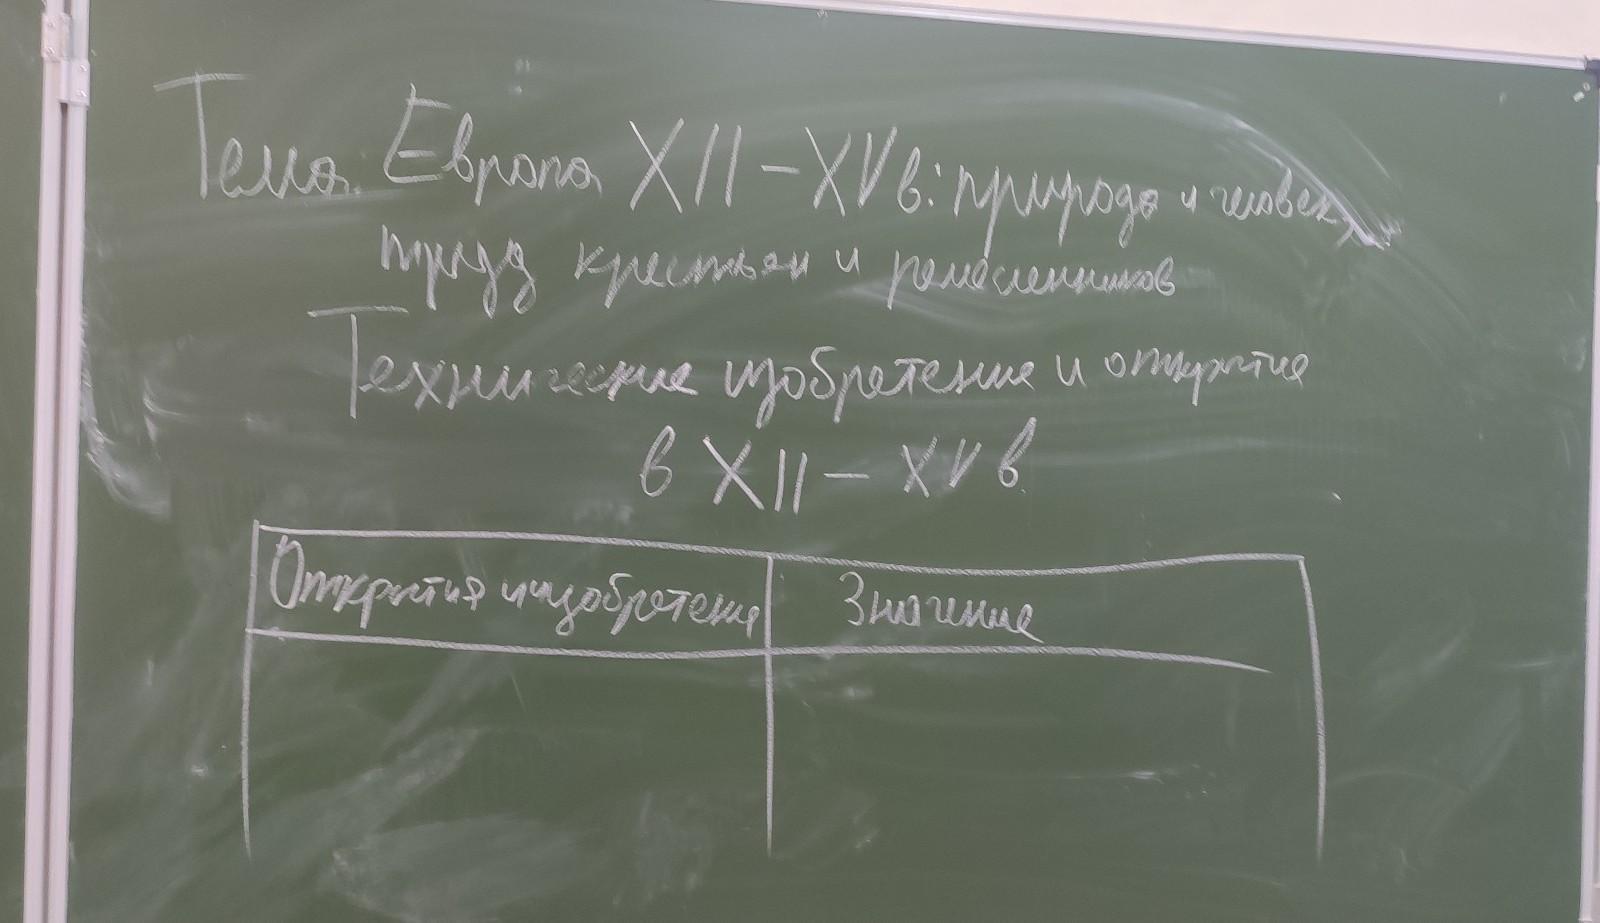 Тема. Европа XII - XV в: природа и человек,
труд крестьян и ремесленников
Технические изобретение и открытие
в XII - XV в.
Открытия и изобретения
Значение